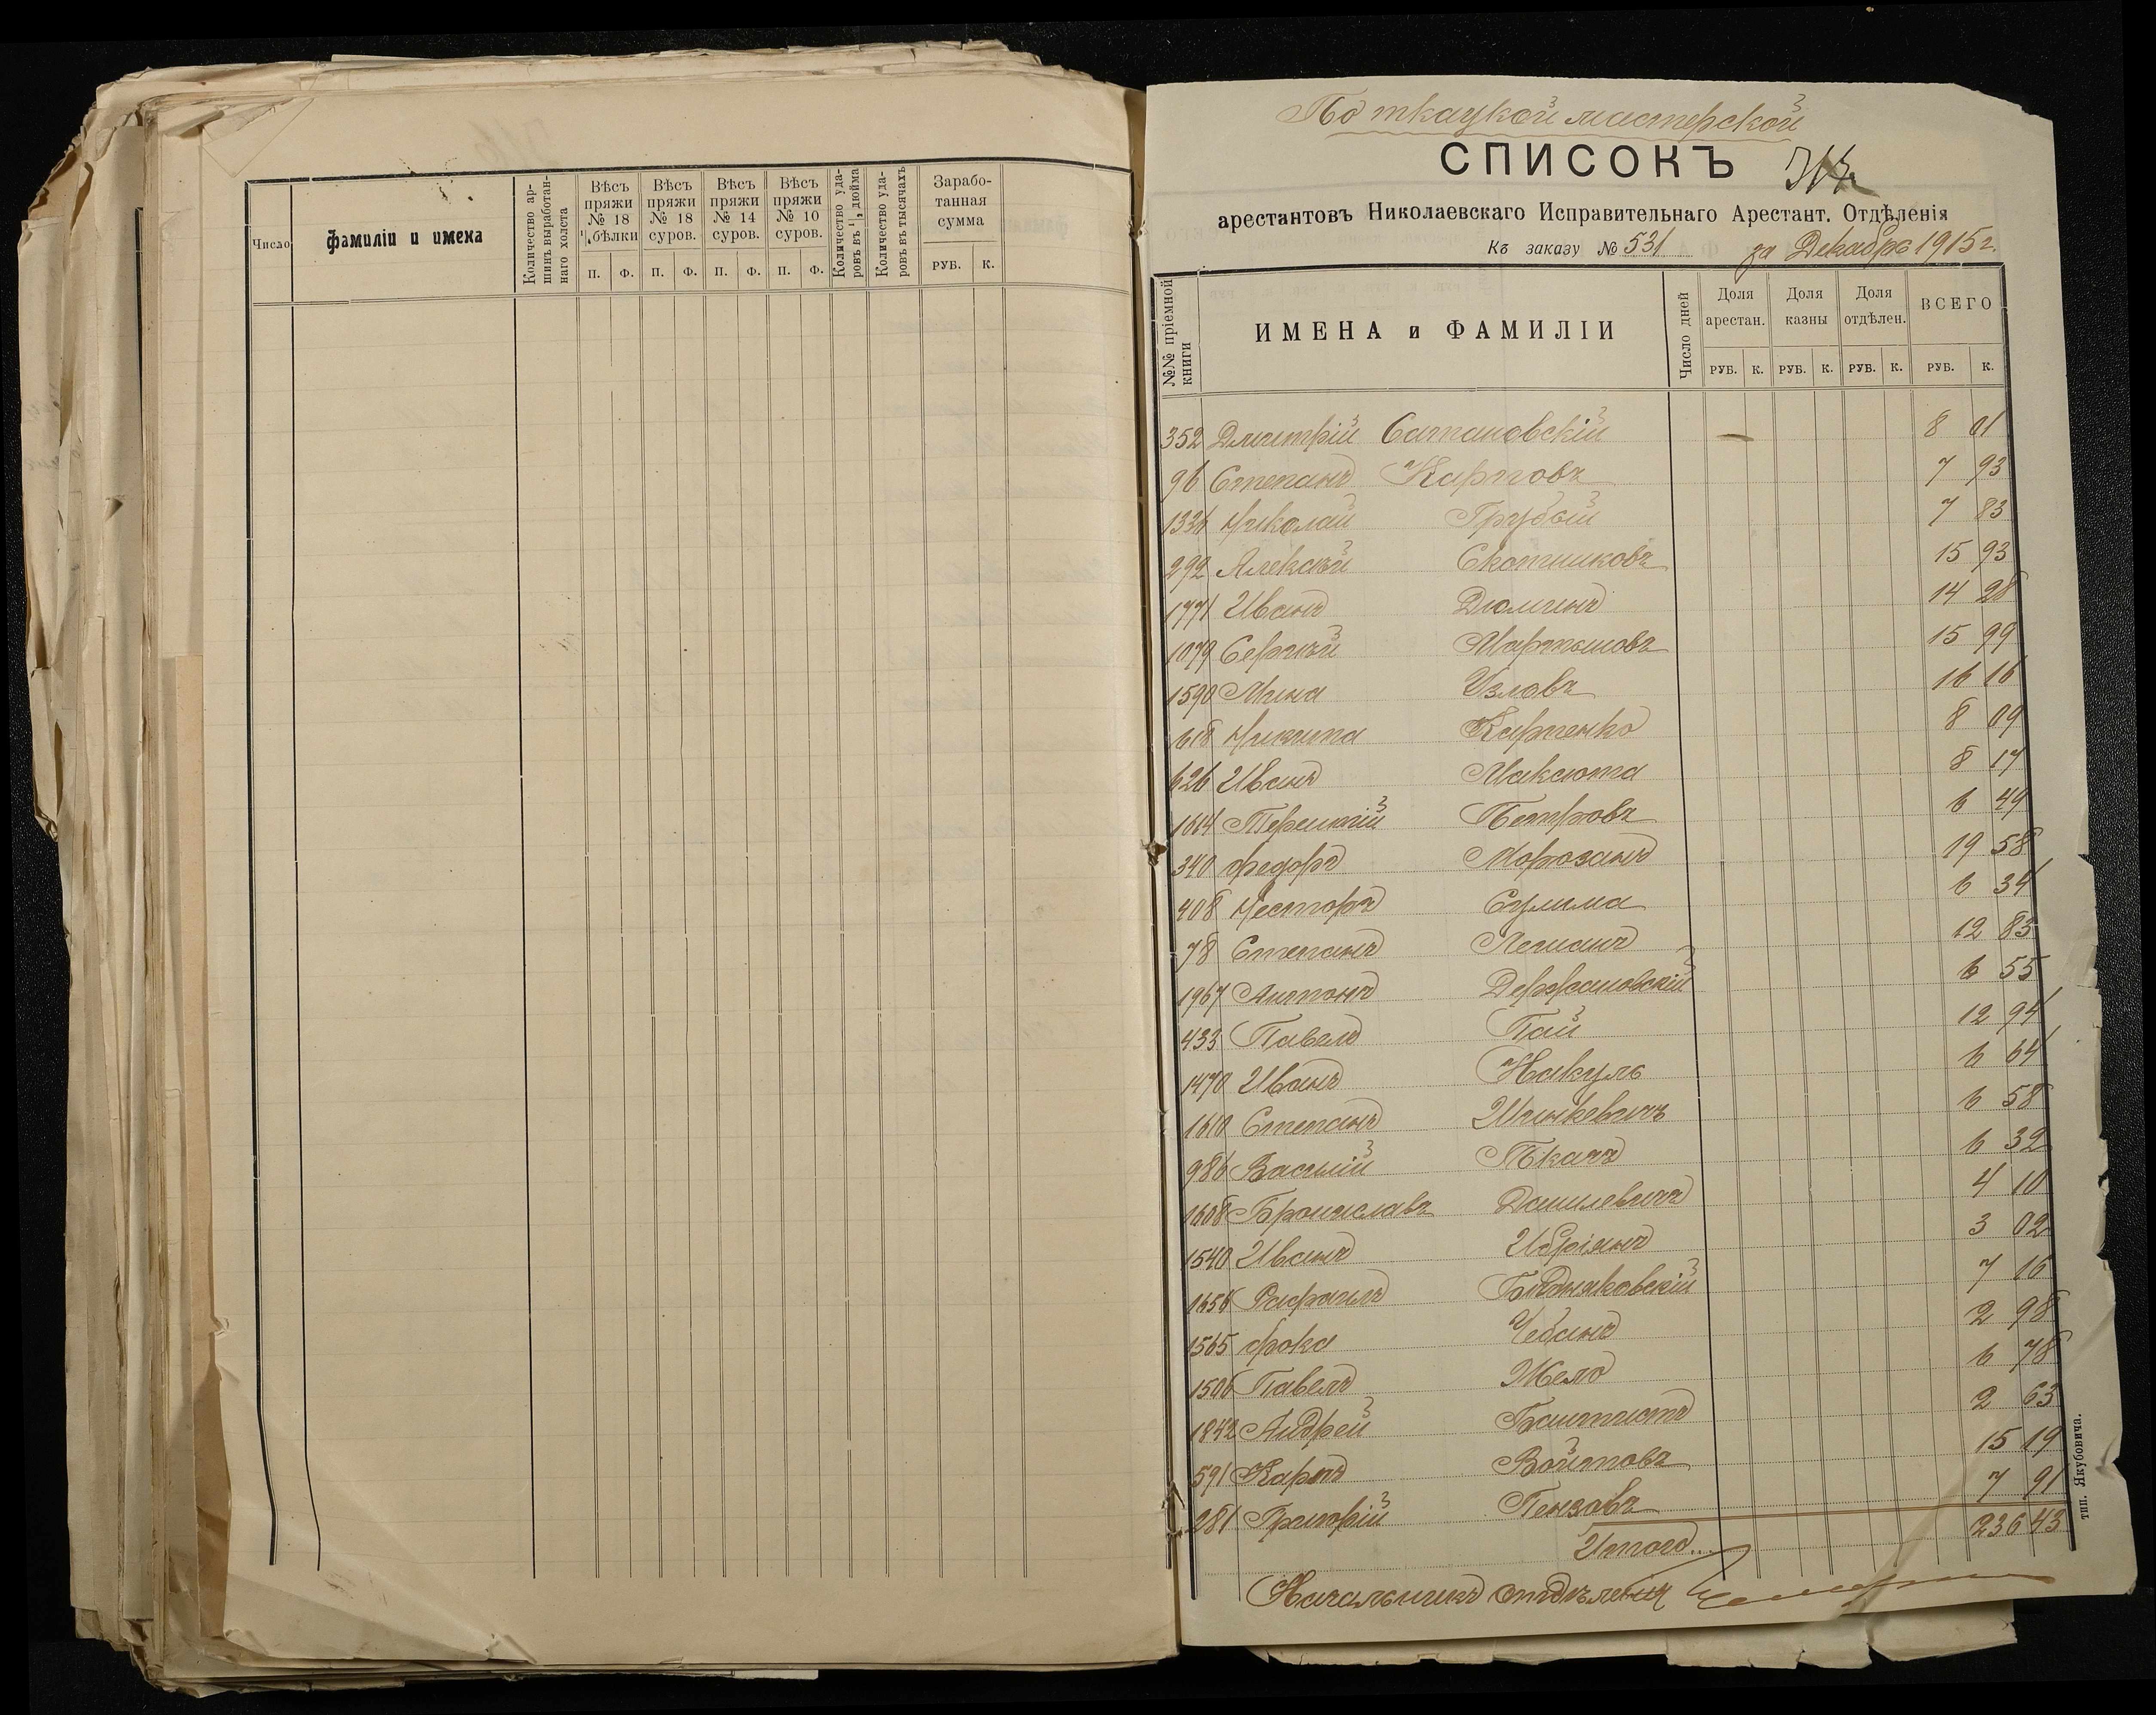 Число
фамиліи и имена
Количество ар-
шинъ выработан-
наго холста
Вѣсъ пряжи № 18 ½ бѣлки
Вѣсъ пряжи № 18 суров.
Вѣсъ пряжи № 14 суров.
Вѣсъ пряжи № 10 суров.
Количество уда-
ровъ въ дюйма
Количество уда-
ровъ въ тысячахъ
Зарабо-
танная
сумма
П. Ф. П. Ф. П. Ф. П. Ф. РУБ. К.
По ткацкой мастерской
СПИСОКЪ
арестантовъ Николаевскаго Исправительнаго Арестант. Отдѣленія
Къ заказу № 531 за Декабрь 1915 г.
№№ пріемной книги
ИМЕНА и ФАМИЛІИ
Число дней
Доля арестан.
Доля казны
Доля отдѣлен.
ВСЕГО
РУБ. К. РУБ. К. РУБ. К. РУБ. К.
352 Дмитрій Сатановскій — 8 01
96 Степанъ Карповъ 7 93
1336 Николай Грубый 7 83
292 Алексѣй Скотниковъ 15 93
1771 Иванъ Дюминъ 14 28
1079 Сергѣй Мартыновъ 15 99
1590 Мина Узловъ 16 16
618 Никита Карпенко 8 09
626 Иванъ Макаюта 8 17
1614 Терентій Петровъ 6 49
340 Федоръ Морозанъ 19 58
408 Несторъ Сулима 6 34
78 Степанъ Леманъ 12 83
1967 Антонъ Держановскій 6 55
433 Павелъ Пай 12 94
1470 Иванъ Накуль 6 64
1610 Степанъ Шинкевичъ 6 58
986 Василій Ткачъ 6 32
1608 Брониславъ Данилевичъ 4 10
1540 Иванъ 3 02
1656 Рафаилъ 7 16
1565 Фока Чебанъ 2 98
1506 Павелъ Жело 6 78
1842 Андрей 2 63
591 Карпъ Войтовъ 15 19
281 Григорій Пензовъ 7 91
Итого... 236 43
Начальникъ отдѣленія
тип. Якубовича.